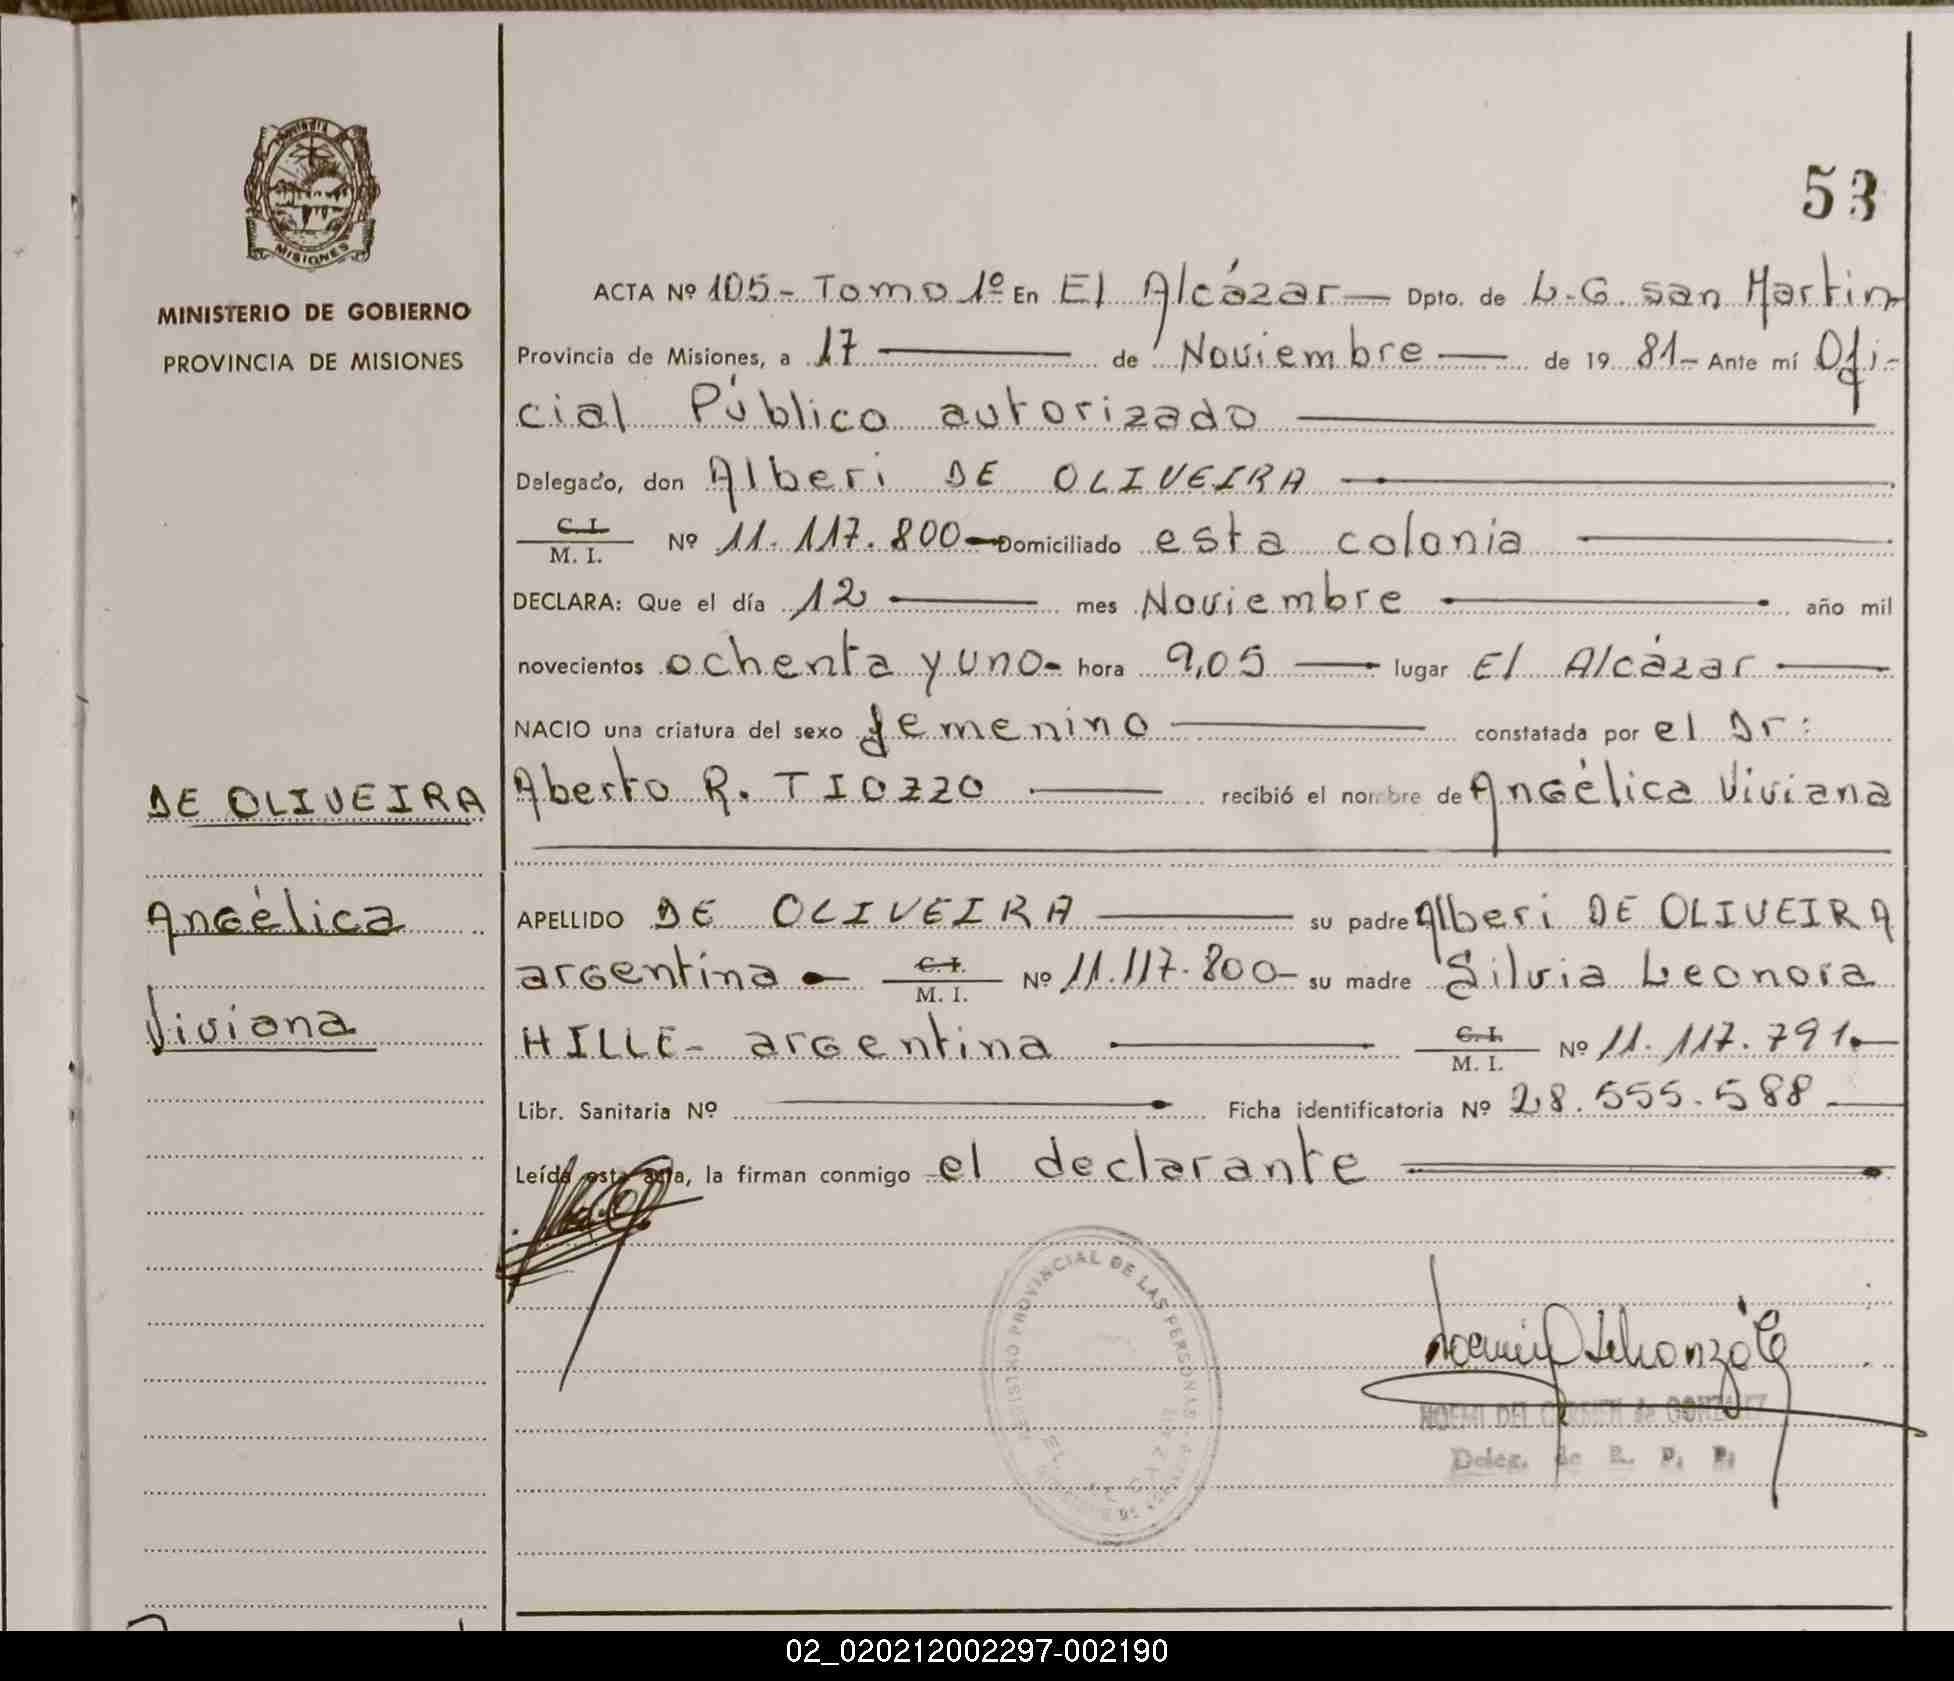 53
MISIONES
MINISTERIO DE GOBIERNO
PROVINCIA DE MISIONES
ACTA Nº 105- Tomo 1º En El Alcázar — Dpto. de L.G. san Martin
Provincia de Misiones, a 17 — de Noviembre — de 19 81- Ante mí Ofi-
cial Público autorizado —
Delegado, don Alberi DE OLIVEIRA —
C.I. / M. I. Nº 11.117.800 - Domiciliado esta colonia —
DECLARA: Que el día 12 — mes Noviembre — año mil
novecientos ochenta y uno - hora 9,05 — lugar El Alcázar —
NACIO una criatura del sexo femenino — constatada por el Dr:
Aberto R. TIOZZO — recibió el nombre de Angélica Viviana
APELLIDO DE OLIVEIRA — su padre Alberi DE OLIVEIRA
argentina — C. I. / M. I. Nº 11.117.800- su madre Silvia Leonora
HILLE- argentina — C. I. / M. I. Nº 11.117.791.—
Libr. Sanitaria Nº — Ficha identificatoria Nº 28.555.588.—
Leída esta acta, la firman conmigo el declarante —
DE OLIVEIRA
Angélica
Viviana
REGISTRO PROVINCIAL DE LAS PERSONAS
NOEMI DEL CARMEN de GONZALEZ
Deleg. de R. P. P.
02_020212002297-002190